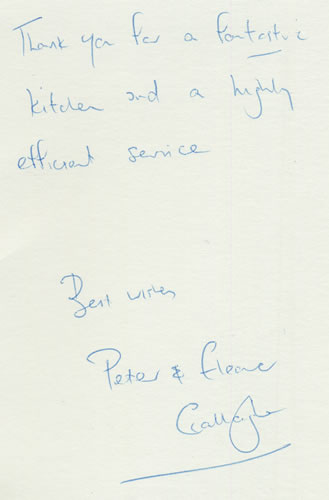 Thank you for a fantastic
kitchen and a highly
efficient service
Best wishes
Peter & Eleanor
Gallagher